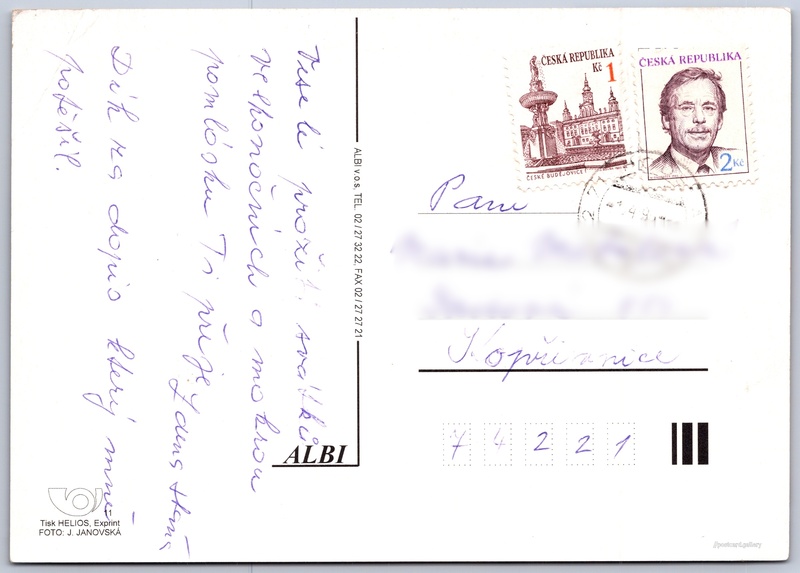 Veselé prožití svátků
velkonočních a mokrou
pomlásku Ti přeje
Jana
Dík za dopis který mně
potěšil.
ALBI v.o.s. TEL. 02 / 27 32 22, FAX 02 / 27 27 21
ALBI
11
Tisk HELIOS, Exprint
FOTO: J. JANOVSKÁ
ČESKÁ REPUBLIKA
Kč 1
ČESKÉ BUDĚJOVICE
ČESKÁ REPUBLIKA
2 Kč
Paní
Kopřivnice
7 4 2 2 1